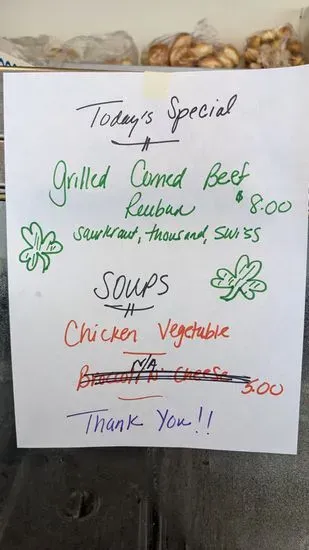 Today's Special
Grilled Corned Beef
Reuban $8.00
Saurkraut, thousand, swiss
SOUPS
Chicken Vegetable
N/A
Broccoli N' Cheese 5.00
Thank You!!